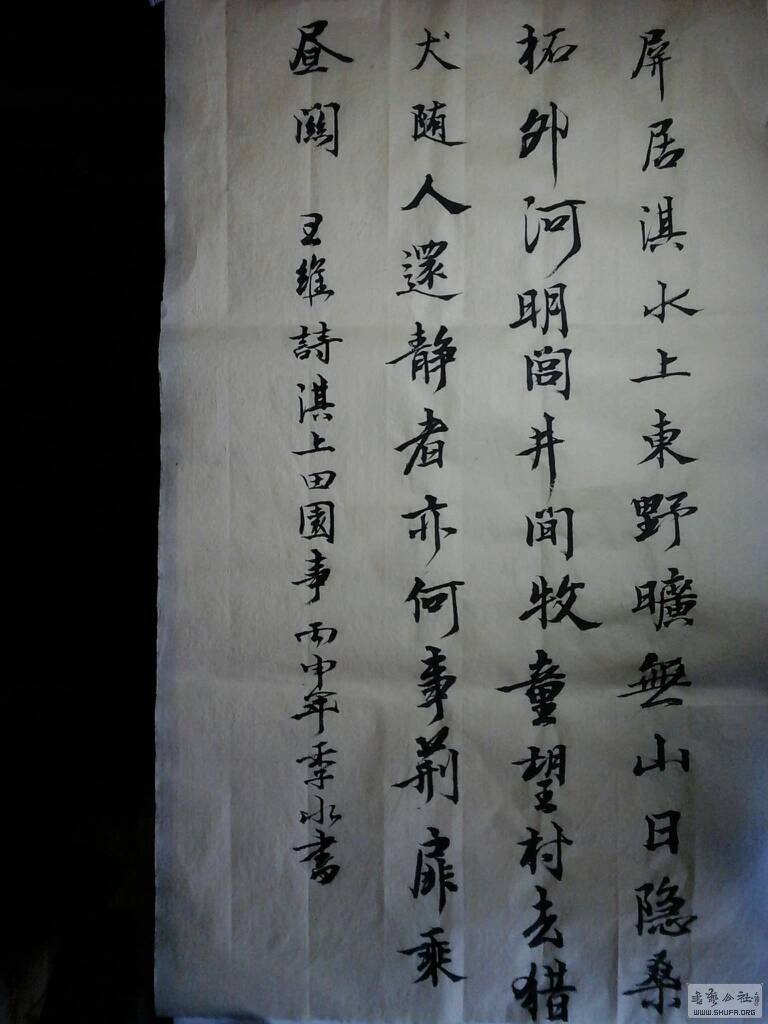 屏居淇水上東野曠無山日隐桑
柘外河明閭井間牧童望村去猎
犬随人還静者亦何事荆扉乘
昼關 王維詩淇上田園事丙申年季水書
書藝公社
WWW.SHUFA.ORG